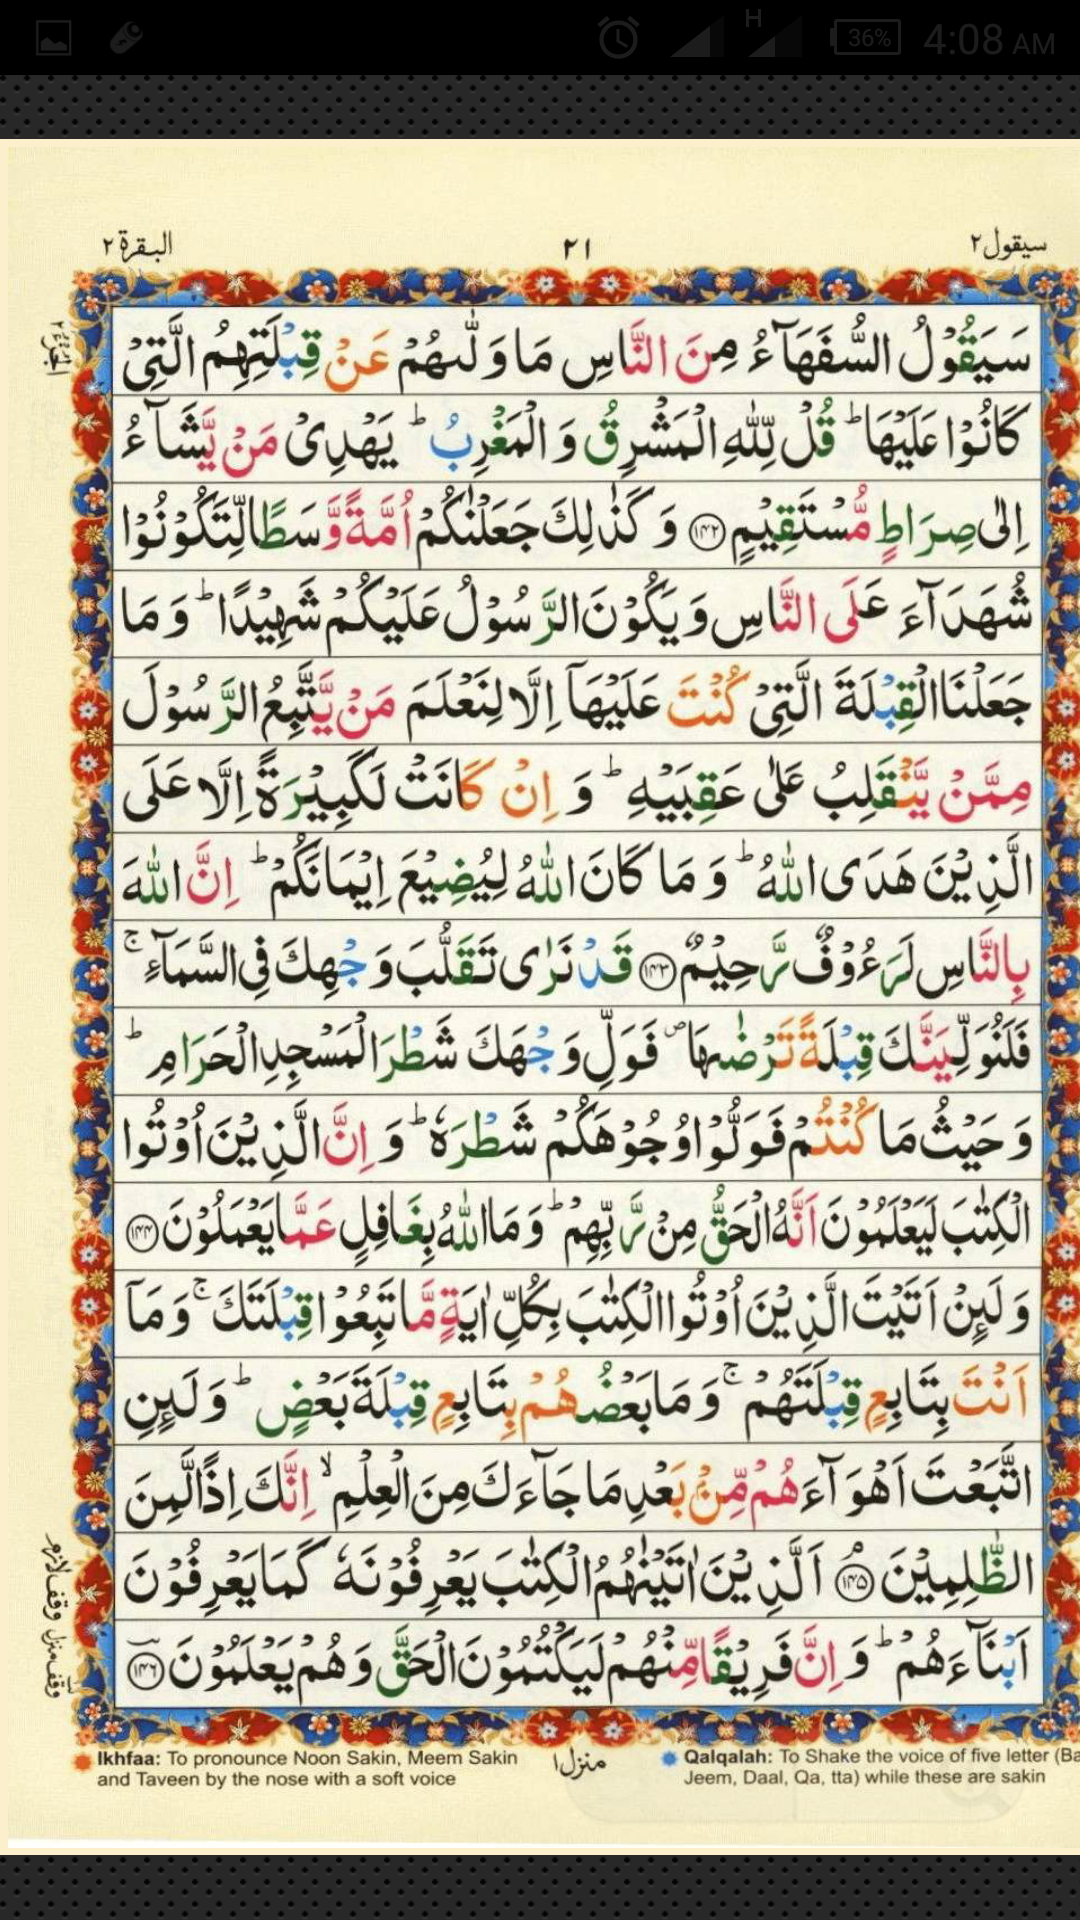 36% 4:08 AM
H
سيقول ٢
٢١
البقرة ٢
الجزء ٢
سَيَقُوْلُ السُّفَهَآءُ مِنَ النَّاسِ مَا وَلّٰىهُمْ عَنْ قِبْلَتِهِمُ الَّتِىْ
كَانُوْا عَلَيْهَا ؕ قُلْ لِّلّٰهِ الْمَشْرِقُ وَ الْمَغْرِبُ ؕ يَهْدِىْ مَنْ يَّشَآءُ
اِلٰى صِرَاطٍ مُّسْتَقِيْمٍ ﴿۱۴۲﴾ وَ كَذٰلِكَ جَعَلْنٰكُمْ اُمَّةً وَّسَطًا لِّتَكُوْنُوْا
شُهَدَآءَ عَلَى النَّاسِ وَ يَكُوْنَ الرَّسُوْلُ عَلَيْكُمْ شَهِيْدًا ؕ وَ مَا
جَعَلْنَا الْقِبْلَةَ الَّتِىْ كُنْتَ عَلَيْهَآ اِلَّا لِنَعْلَمَ مَنْ يَّتَّبِعُ الرَّسُوْلَ
مِمَّنْ يَّنْقَلِبُ عَلٰى عَقِبَيْهِ ؕ وَ اِنْ كَانَتْ لَكَبِيْرَةً اِلَّا عَلَى
الَّذِيْنَ هَدَى اللّٰهُ ؕ وَ مَا كَانَ اللّٰهُ لِيُضِيْعَ اِيْمَانَكُمْ ؕ اِنَّ اللّٰهَ
بِالنَّاسِ لَرَءُوْفٌ رَّحِيْمٌ ﴿۱۴۳﴾ قَدْ نَرٰى تَقَلُّبَ وَجْهِكَ فِى السَّمَآءِ ۚ
فَلَنُوَلِّيَنَّكَ قِبْلَةً تَرْضٰىهَا ۪ فَوَلِّ وَجْهَكَ شَطْرَ الْمَسْجِدِ الْحَرَامِ ؕ
وَ حَيْثُ مَا كُنْتُمْ فَوَلُّوْا وُجُوْهَكُمْ شَطْرَهٗ ؕ وَ اِنَّ الَّذِيْنَ اُوْتُوا
الْكِتٰبَ لَيَعْلَمُوْنَ اَنَّهُ الْحَقُّ مِنْ رَّبِّهِمْ ؕ وَ مَا اللّٰهُ بِغَافِلٍ عَمَّا يَعْمَلُوْنَ ﴿۱۴۴﴾
وَ لَئِنْ اَتَيْتَ الَّذِيْنَ اُوْتُوا الْكِتٰبَ بِكُلِّ اٰيَةٍ مَّا تَبِعُوْا قِبْلَتَكَ ۚ وَ مَآ
اَنْتَ بِتَابِعٍ قِبْلَتَهُمْ ۚ وَ مَا بَعْضُهُمْ بِتَابِعٍ قِبْلَةَ بَعْضٍ ؕ وَ لَئِنِ
اتَّبَعْتَ اَهْوَآءَهُمْ مِّنْۢ بَعْدِ مَا جَآءَكَ مِنَ الْعِلْمِ ۙ اِنَّكَ اِذًا لَّمِنَ
الظّٰلِمِيْنَ ﴿۱۴۵﴾ۘ اَلَّذِيْنَ اٰتَيْنٰهُمُ الْكِتٰبَ يَعْرِفُوْنَهٗ كَمَا يَعْرِفُوْنَ
اَبْنَآءَهُمْ ؕ وَ اِنَّ فَرِيْقًا مِّنْهُمْ لَيَكْتُمُوْنَ الْحَقَّ وَ هُمْ يَعْلَمُوْنَ ﴿۱۴۶﴾
وقف لازم
وقف منزل
Ikhfaa: To pronounce Noon Sakin, Meem Sakin
and Taveen by the nose with a soft voice
منزل ١
Qalqalah: To Shake the voice of five letter (Ba
Jeem, Daal, Qa, tta) while these are sakin